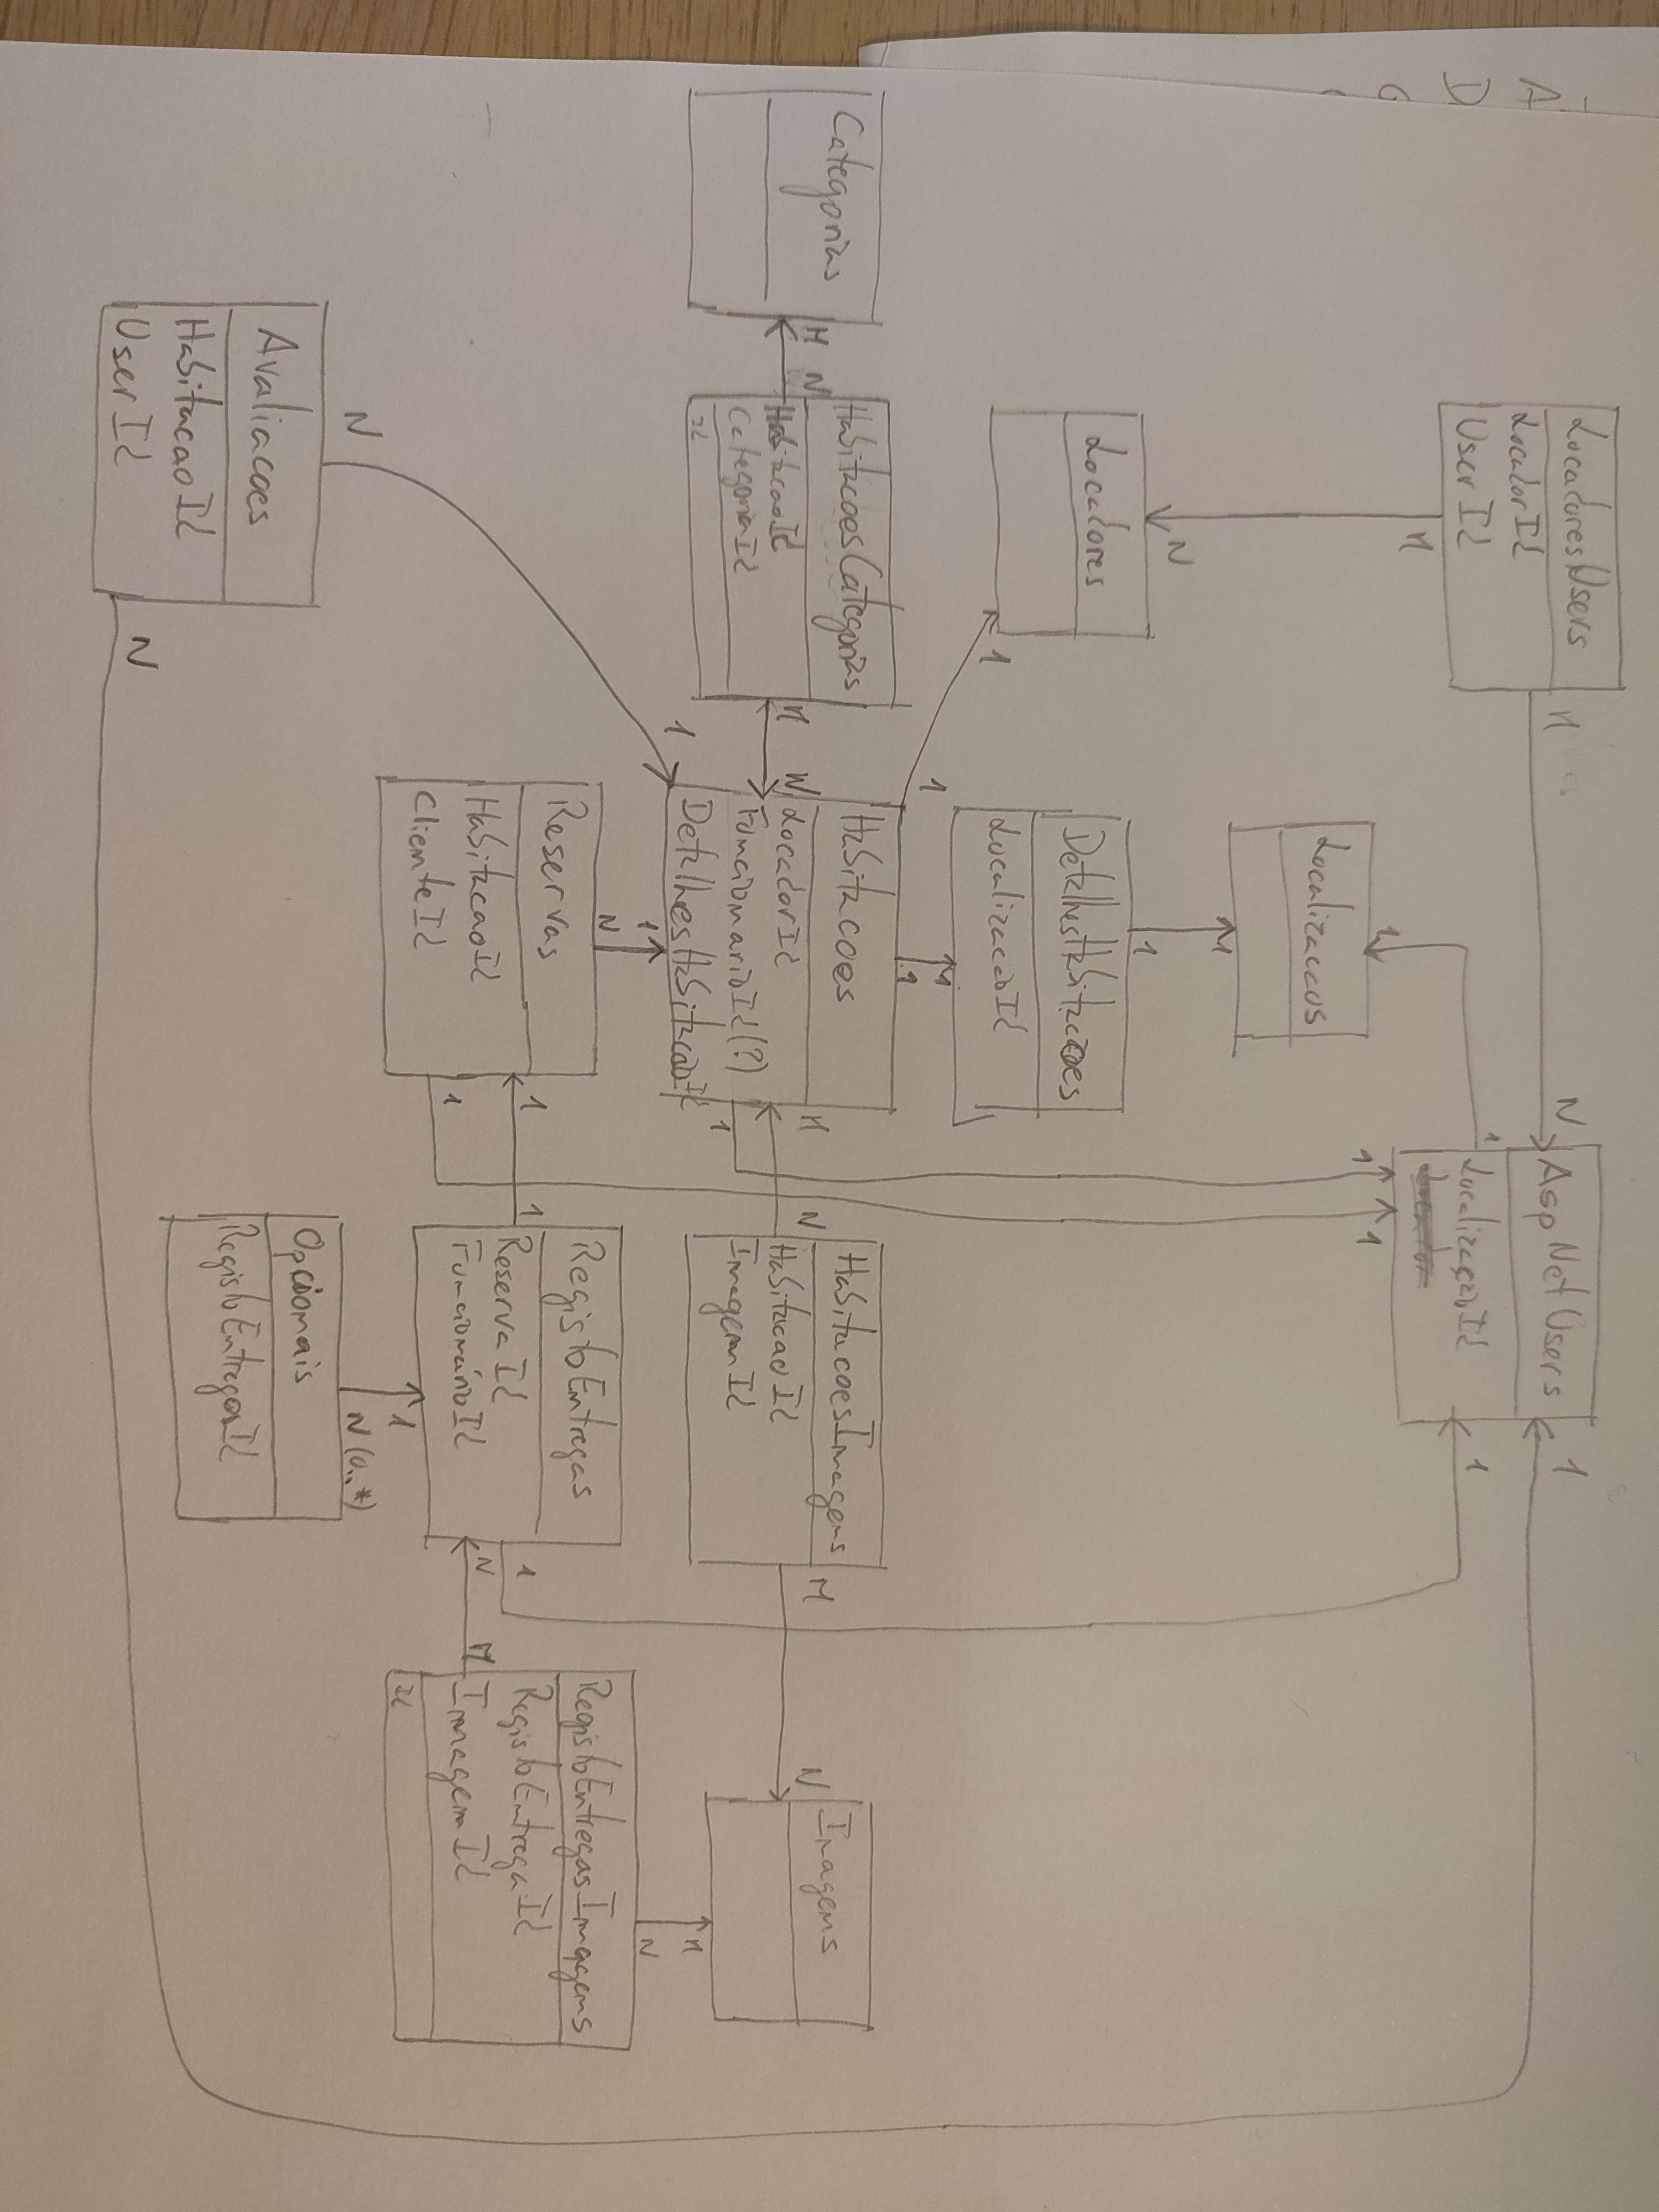 A
D
LocadoresUsers
LocadorId
UserId
M
N
AspNetUsers
LocalizaçãoId
1
1
1
1
1
1
M
N
Localizacoes
1
1
Locadores
1
DetalhesHabitacoes
LocalizacaoId
1
1
1
Categorias
M
N
HabitacoesCategorias
HabitacaoId
CategoriaId
Id
M
N
Habitacoes
LocadorId
FuncionarioId(?)
DetalhesHabitacaoId
1
M
N
HabitacoesImagens
HabitacaoId
ImagemId
M
N
Imagens
M
N
1
1
N
Reservas
HabitacaoId
ClienteId
1
1
1
RegistoEntregas
ReservaId
FuncionárioId
1
N
M
RegistoEntregasImagens
RegistoEntregaId
ImagemId
Id
1
N (0..*)
Opcionais
RegistoEntregasId
N
Avaliacoes
HabitacaoId
UserId
N